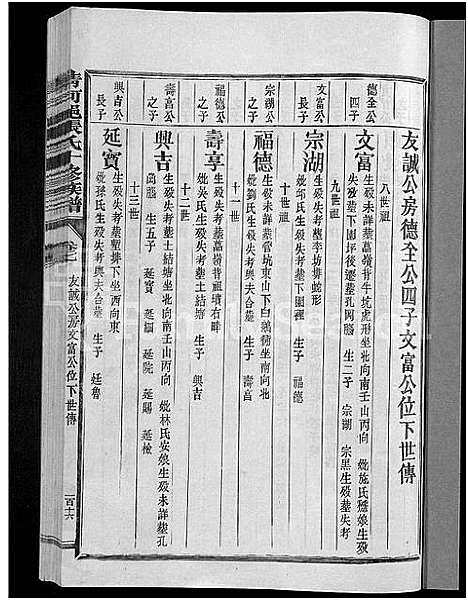 友誠公房德全公四子文富公位下世傳
八世祖
德全公四子
文富 生歿未詳墓嶺背牛坑虎形坐北向南壬山丙向 妣施氏
失考墓下園坪後遷墓孔岡腦 生二子 宗湖 宗黑生歿墓失考
九世祖
文富公長子
宗湖 生歿失考墓李坊排蛇形
妣邱氏生歿失考墓下園裡 生子 福德
十世祖
宗湖公之子
福德 生歿未詳墓營坑東山下白鵝術坐南向北
妣劉氏生歿失考 生子 壽高
十一世
福德公之子
壽享 生歿失考墓嶺背祖墳右畔
妣吳氏生歿失考墓土結塘 生子 興吉
十二世
壽高公之子
興吉 生歿失考墓土結塘坐北向南壬山丙向 妣林氏安娘生歿未詳墓孔
岡腦 生五子 延寶 延緇 延院 延賜 延檢
十三世
興吉公長子
延寶 生歿失考墓塱排下坐西向東
妣孫氏生歿失考與夫合墓 生子 廷魯
清河邑張氏十修族譜
卷二
友誠公房文富公位下世傳
一百十六